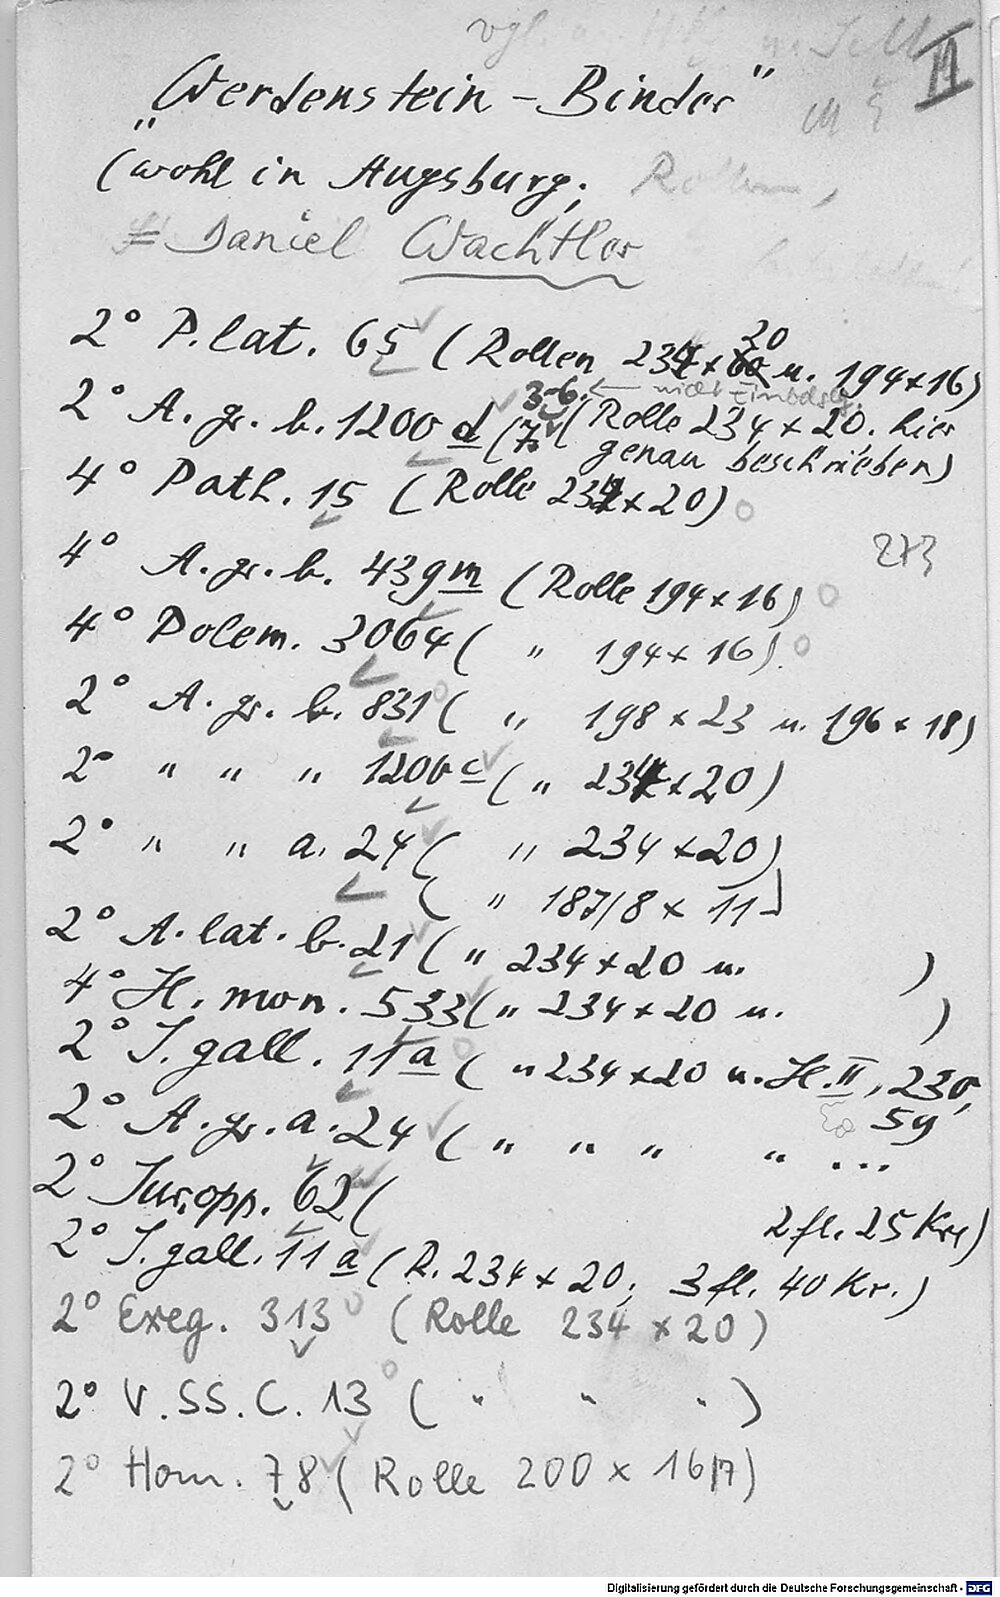 vgl.
II
„Werdenstein-Binder"
(wohl in Augsburg;
= Daniel Wachtler
2° P. lat. 65 (Rollen 234 x 20 u. 194 x 16)
3-6. ← nicht Einbdslg.
2° A. gr. b. 1200 d (7. (Rolle 234 x 20. hier
genau beschrieben)
4° Path. 15 (Rolle 234 x 20)
273
4° A. gr. b. 439 m (Rolle 194 x 16)
4° Polem. 3064 ( " 194 x 16).
2° A. gr. b. 831 ( " 198 x 23 u. 196 x 18)
2° " " " 1200 c ( " 234 x 20)
2° " " a. 24 ( " 234 x 20)
( " 187/8 x 11-)
2° A. lat. b. 21 ( " 234 x 20 u. )
4° H. mon. 533 ( " 234 x 20 u. )
2° J. gall. 11 a ( " 234 x 20 u. H. II, 230,
59
2° A. gr. a. 24 ( " " " " ...
2° Jur. opp. 62 (
2 fl. 25 Kr.)
2° J. gall. 11 a (R. 234 x 20; 3 fl. 40 Kr.)
2° Exeg. 313 (Rolle 234 x 20)
2° V. SS. C. 13 ( " " " )
2° Hom. 78 (Rolle 200 x 16/17)
Digitalisierung gefördert durch die Deutsche Forschungsgemeinschaft - DFG